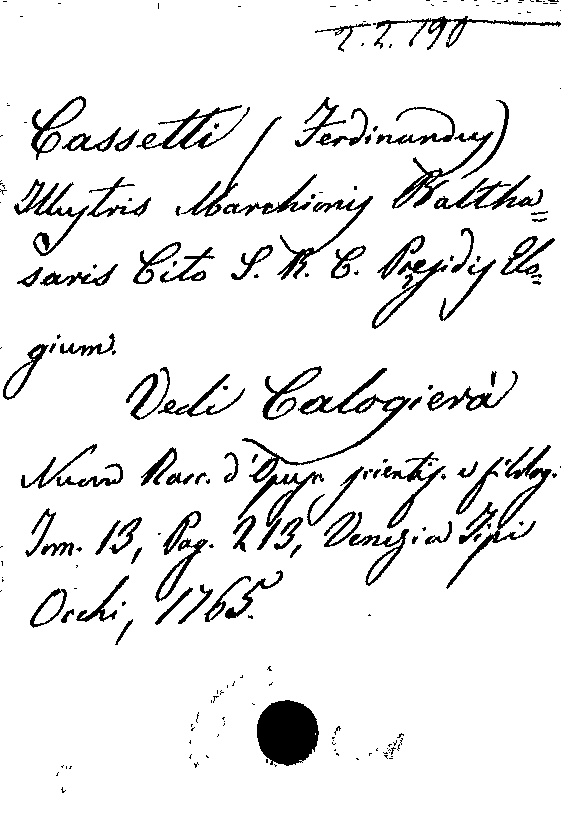 2.2.190
Cassetti (Ferdinandus)
Illustris Marchionis Baltha=
saris Cito S. R. C. Præsidis Elo=
gium.
Vedi Calogierà
Nuova Racc. d'Opus. scientif. e filolog.
Tom. 13, Pag. 213, Venezia Tipi
Occhi, 1765.